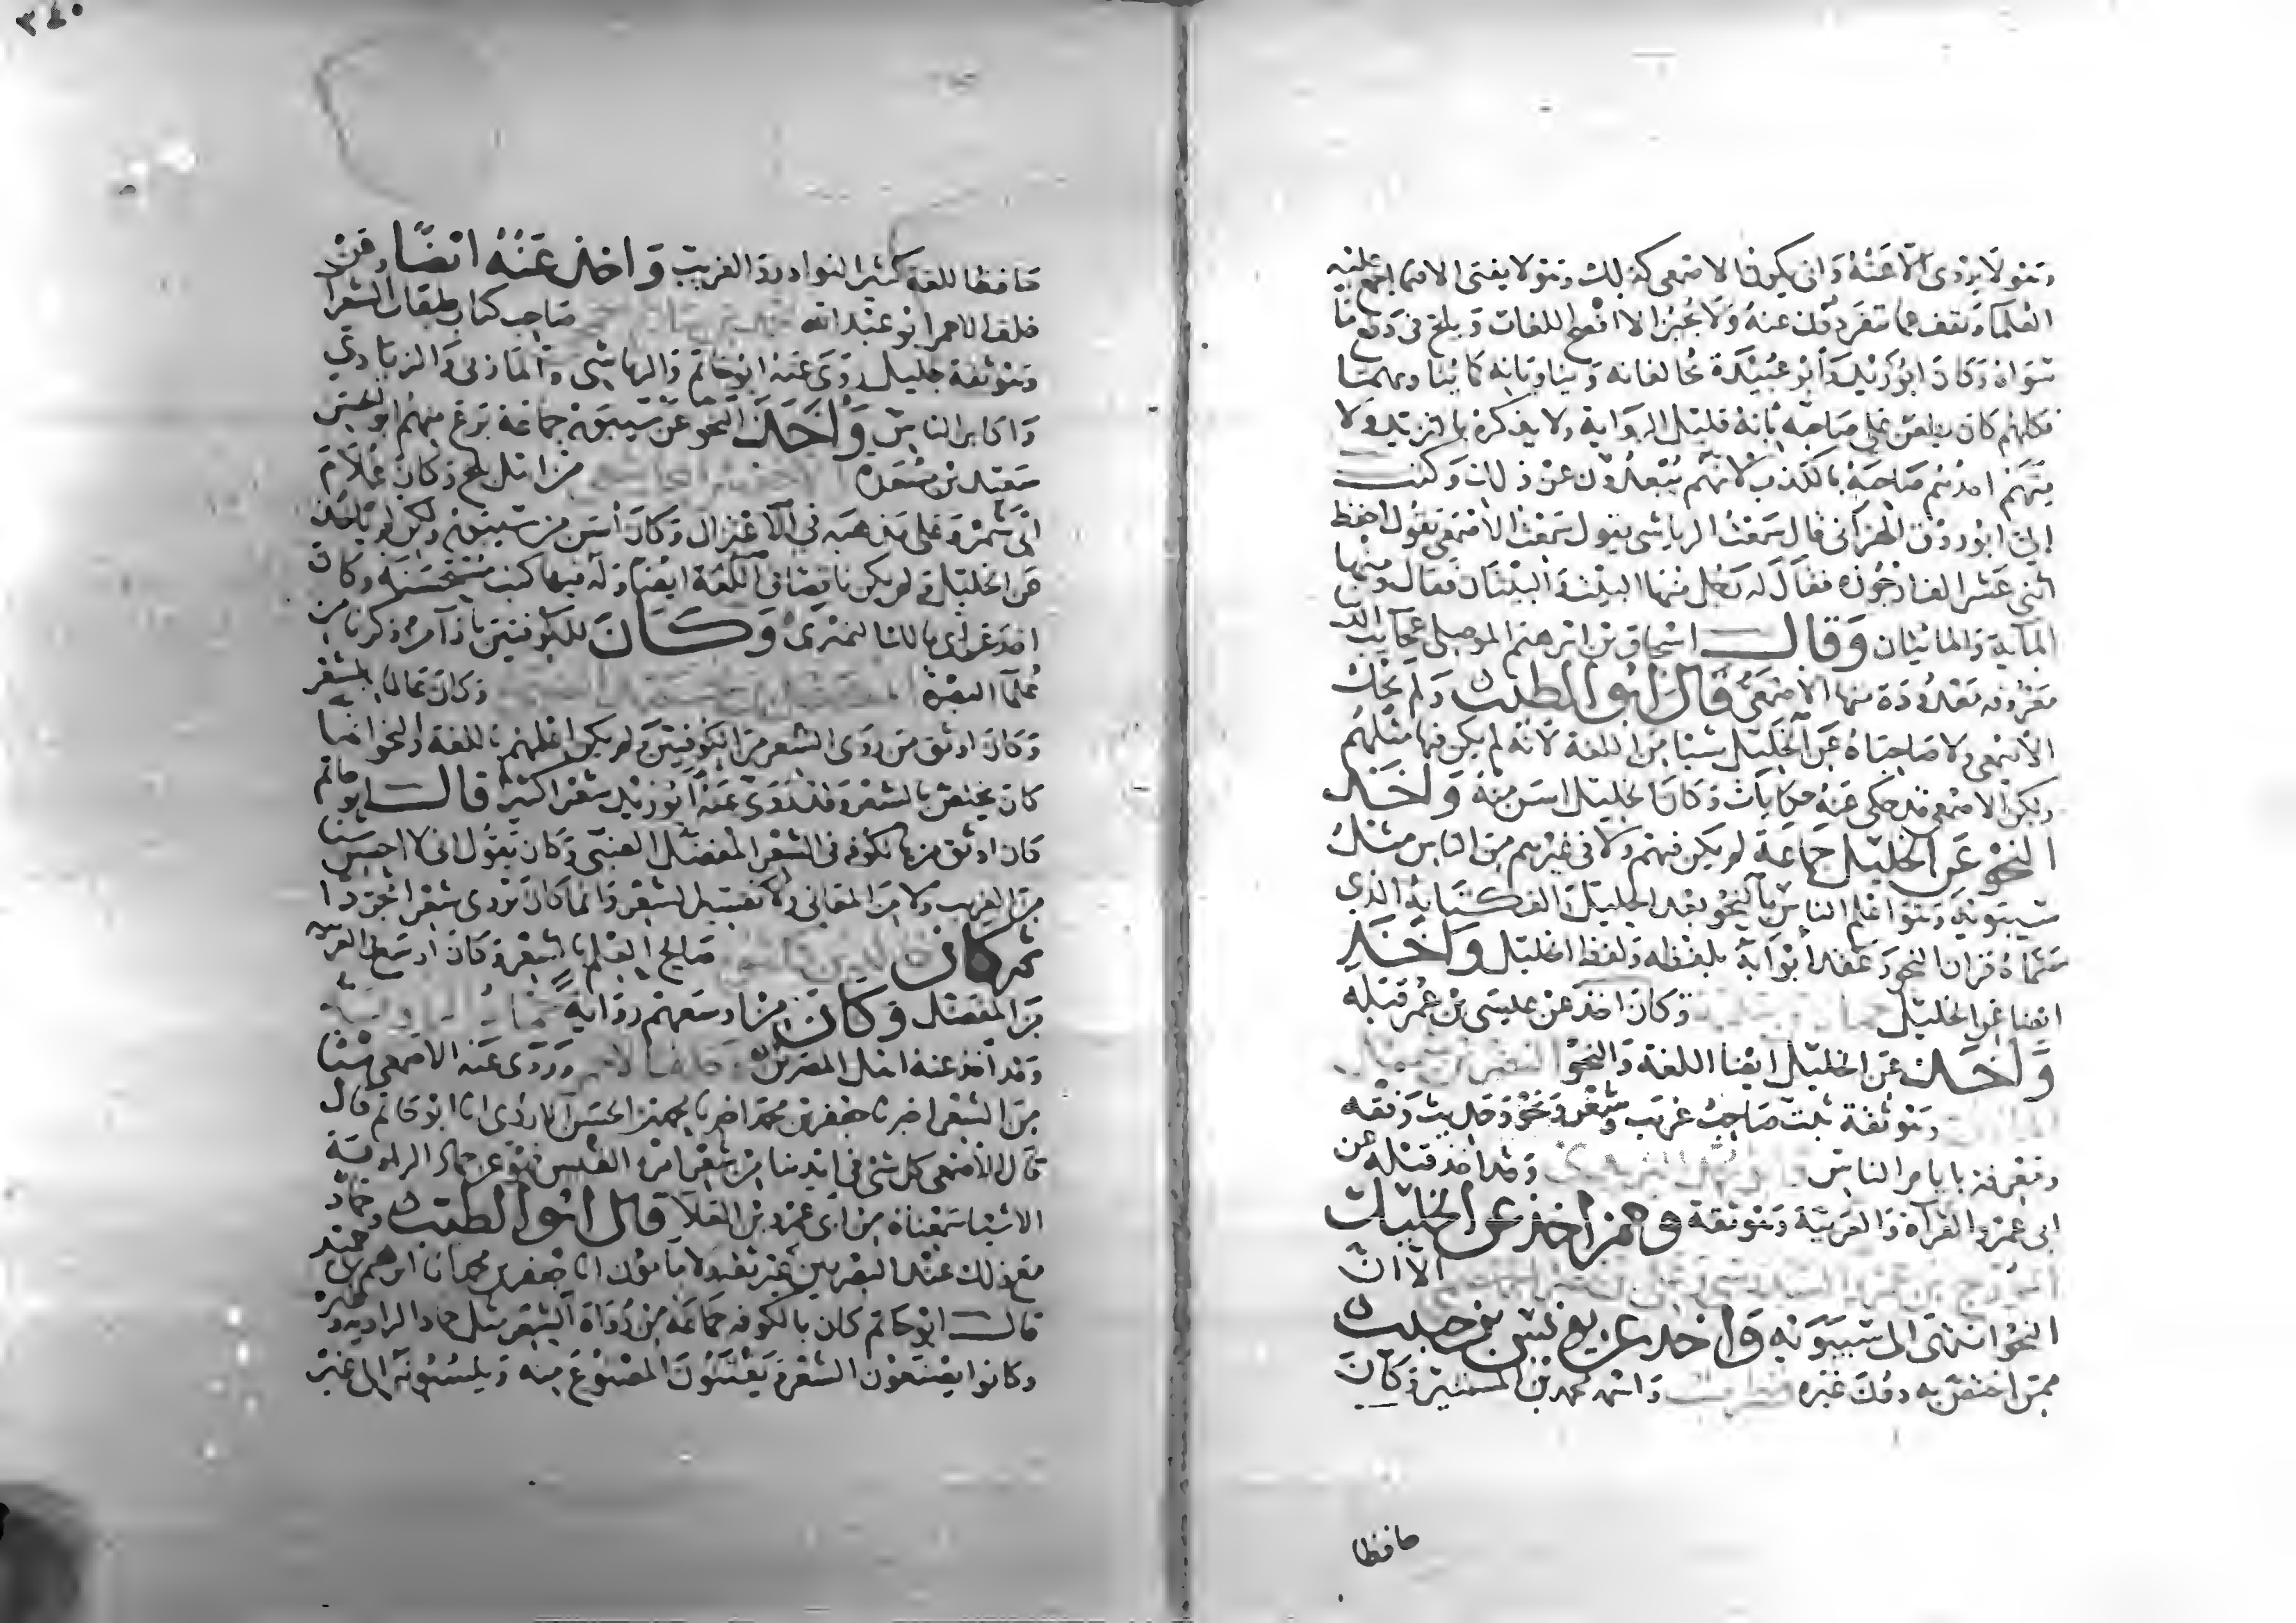 وهو لا يروى الا عنه وانى يكون الاصمعى كذلك وهو لا يفتى الا فيما اجمع عليه
العلما ويقف عما تفرد عنه ولا يجيز الا افصح اللغات ويلج فى دفع ما
سواه وكان ابو زيد وابو عبيدة يخالفانه ويناويانه كما يناويهما
فكلهم كان يطعن على صاحبه بانه قليل الرواية ولا يذكره بالتزيد ولا
يتهم احدهم صاحبه بالكذب لانهم يبعدون عن ذلك وكتب
الى ابو روق الهزانى قال سمعت الرياشى يقول سمعت الاصمعى يقول احفظ
اثنى عشر الف ارجوزه فقال له رجل منها البيت والبيتان فقال ومنها
المآية والمائتان وقال اسحاق بن ابرهيم الموصلى عجايب الدنيا
معروفه معدودة منها الاصمعى قال ابو الطيب ولم يحك
الاصمعى ولا صاحباه عن الخليل شيا من اللغة لانه لم يكن فيها مثلهم
ولكن الاصمعى قد حكى عنه حكايات وكان الخليل اسن منه واخذ
النحو عن الخليل جماعة لم يكن فيهم ولا فى غيرهم من الناس مثل
سيبويه وهو اعلم الناس بالنحو بعد الخليل والف كتابه الذى
سماه قران النحو وعقد ابوابه بلفظه ولفظ الخليل واخذ
ايضا عن الخليل وكان اخذ عن عيسى بن عمر قبله
واخذ عن الخليل ايضا اللغة والنحو النضر بن شميل
وهو ثقة ثبت صاحب غريب وشعر ونحو وحديث وفقه
ومعرفة بايام الناس وقد اخذ قبله عن
ابى عمرو القرآة والعربية وهو ثقة وممن اخذ عن الخليل
الا ان
النحو انتهى الى سيبويه واخذ عن يونس بن حبيب
ممن اختص به دون غيره قطرب واسمه محمد بن المستنير وكان
حافظا
٣٤٠
حافظا للغة كثير النوادر والغريب واخذ عنه ايضا وعن
خلف الاحمر ابو عبد الله صاحب كتاب طبقات الشعرا
وهو ثقة جليل روى عنه ابو حاتم والرياشى والمازنى والزيادى
واكابر الناس واخذ النحو عن سيبويه جماعة برع منهم ابو الحسن
سعيد بن مسعدة من اهل بلخ وكان غلام
ابى شمر وعلى مذهبه فى الاعتزال وكان اسن من سيبويه ولكن لم ياخذ
عن الخليل ولم يكن ناقصا فى اللغة ايضا وله فيها كتب مستحسنه وكان
اخذ عن ابى مالك النميرى وكان للكوفيين بازآء من ذكرنا من
علمآ البصرة وكان عالما بالشعر
وكان اوثق من روى الشعر من الكوفيين ولم يكن اعلمهم باللغة والنحو انما
كان يختص بالشعر وقد روى عنه ابو زيد شعرا كثيرا قال ابو حاتم
كان اوثق من بالكوفه فى الشعر المفضل الضبى وكان يقول انى لا احسن شيا
من الغريب ولا من المعانى ولا تفسير الشعر وانما كان يروى شعرا مجردا
ثم كان صالح العلم بالشعر وكان اوسع فى العربيه
من المفضل وكان من اوسعهم رواية
وقد اخذ عنه اهل المصرين وروى عنه الاصمعى شيا
من الشعر اخبرنا جعفر بن محمد اخبرنا ابرهيم بن الحسن انا ابو حاتم قال
قال الاصمعى كل شى فى ايدينا من شعر امرئ القيس فهو عن حماد الراوية
الا شيئا سمعناه من ابى عمرو بن العلآ قال ابو الطيب وحماد
مع ذلك عند البصريين غير ثقة ولا مامون انا جعفر بن محمد انا ابرهيم بن حميد
قال ابو حاتم كان بالكوفه جماعة من رواة الشعر مثل حماد الراويه وغيره
وكانوا يصنعون الشعر ويقتنون المصنوع منه وينسبونه الى غير